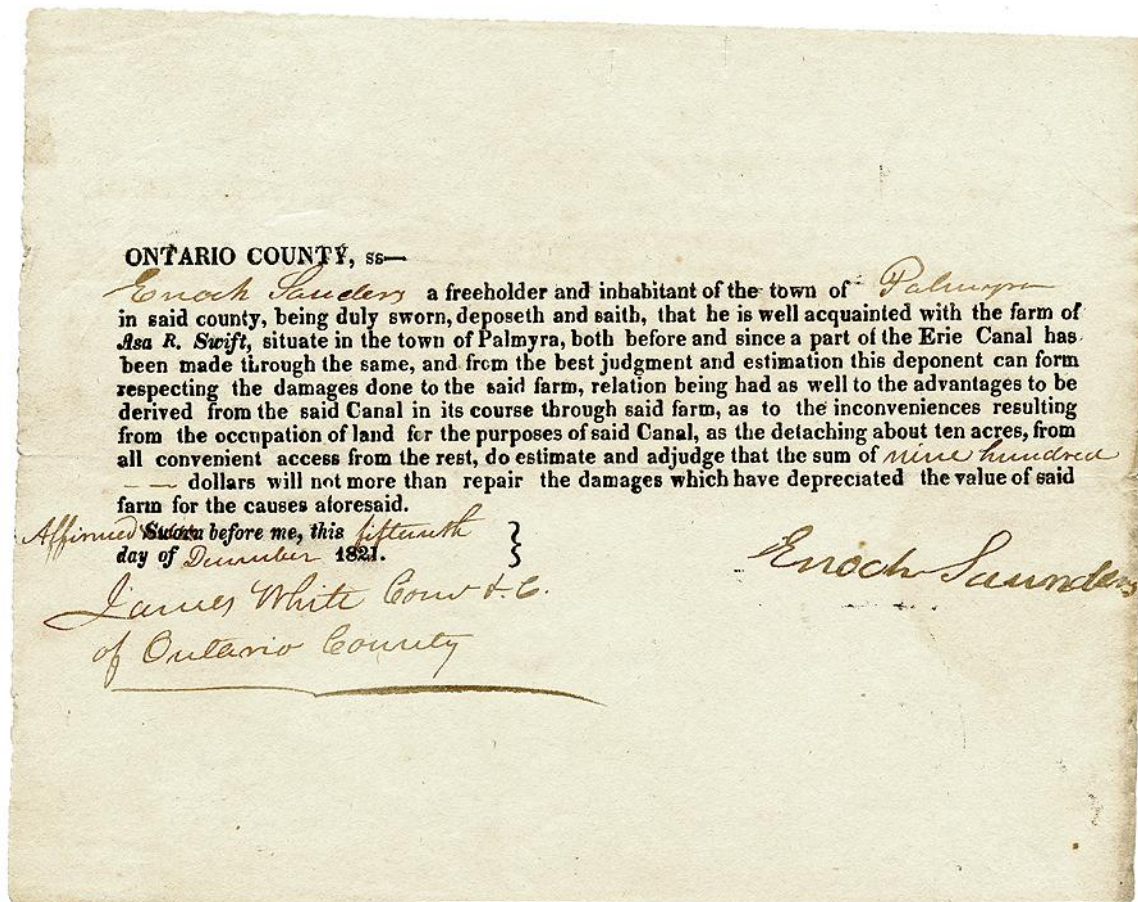 ONTARIO COUNTY, ss—
Enoch Sanders a freeholder and inhabitant of the town of Palmyra
in said county, being duly sworn, deposeth and saith, that he is well acquainted with the farm of
Asa R. Swift, situate in the town of Palmyra, both before and since a part of the Erie Canal has
been made through the same, and from the best judgment and estimation this deponent can form
respecting the damages done to the said farm, relation being had as well to the advantages to be
derived from the said Canal in its course through said farm, as to the inconveniences resulting
from the occupation of land for the purposes of said Canal, as the detaching about ten acres, from
all convenient access from the rest, do estimate and adjudge that the sum of nine hundred
— — dollars will not more than repair the damages which have depreciated the value of said
farm for the causes aforesaid.
Affirmed Sworn before me, this fifteenth
day of December 1821.
Enoch Saunders
James White Com &.C.
of Ontario County